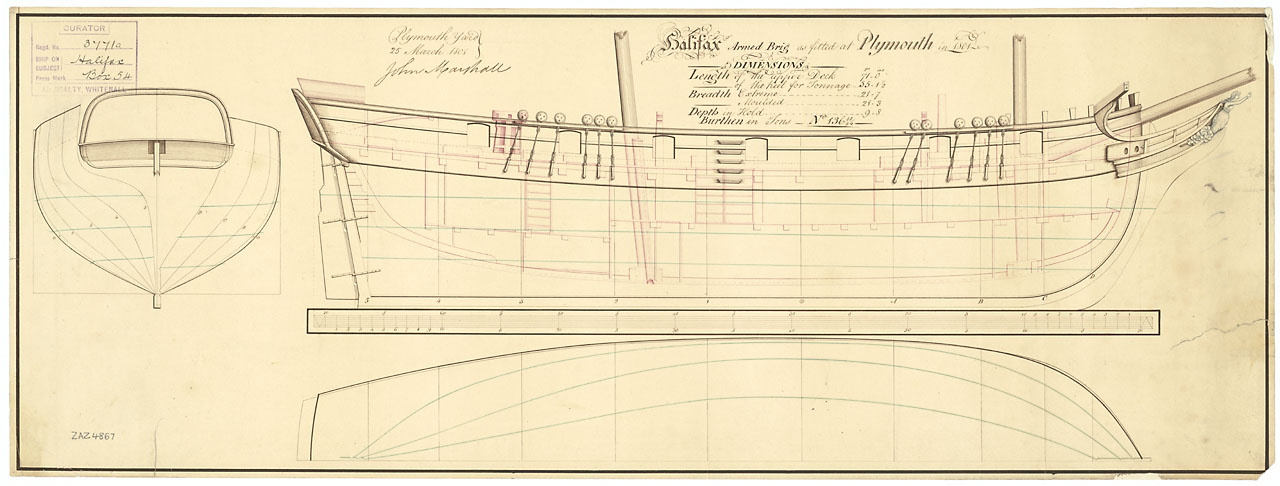 CURATOR
Regd. No. 3771a
SHIP OR SUBJECT Halifax
Press Mark Box 54
ADMIRALTY, WHITEHALL
Plymouth Yard
25 March 1801
John Marshall
Halifax Armed Brig as fitted at Plymouth in 1801
DIMENSIONS
Length of the upper Deck 71-0
of the keel for Tonnage
Breadth Extreme 21-7
Moulded 21-3
Depth in Hold 9-8
Burthen in Tons No 136
5 4 3 2 1 A B C D
ZAZ4867